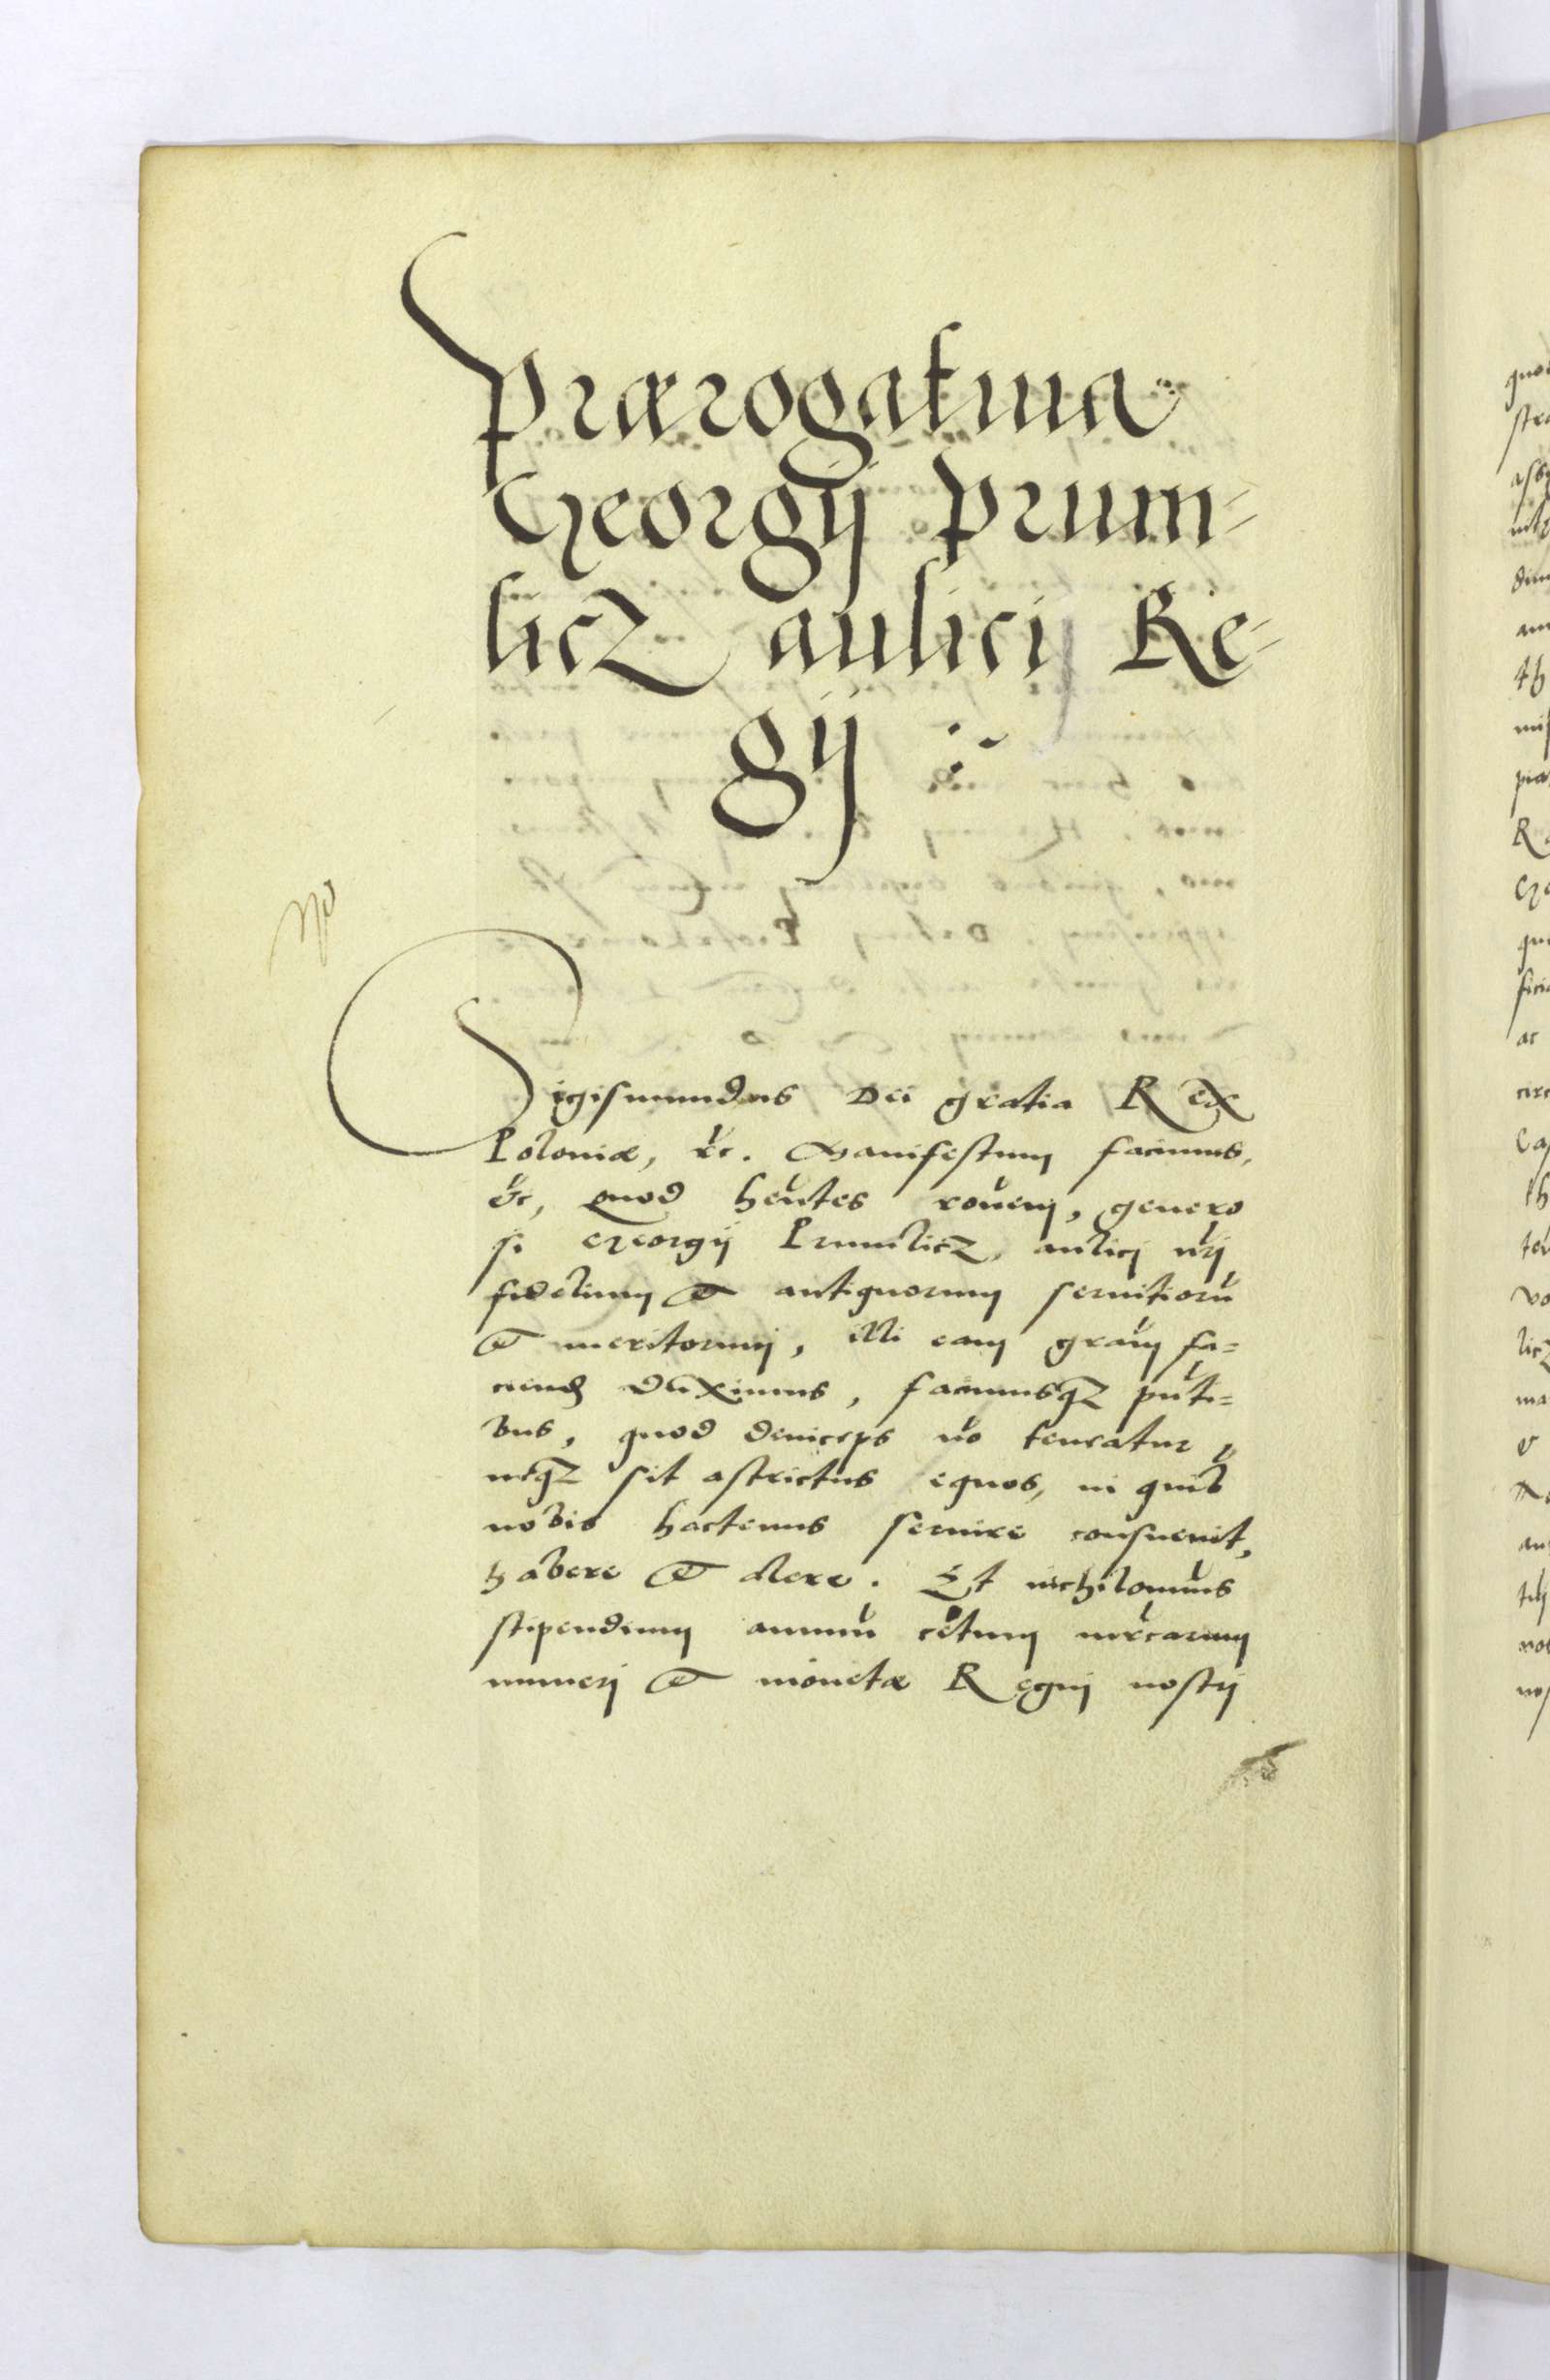 Prærogatiua
Georgij Prum-
licz aulici Re-
gij
Sigismundus Dei gratia Rex
Poloniæ, &c. Manifestum facimus,
&c, Quod hentes rōnem, genero
si Georgij Prumlicz, aulici nrj
fidelium & antiquorum seruitiorū
& meritorum, illi eam gram fa-
ciend duximus, facimusqz pnti-
bus, quod deinceps no teneatur,
neqz sit astrictus equos, in quib
nobis hactenus seruire consueuit,
habere & alere. Et nichilominus
stipendium annuū cētum mrcarum
numerj & monetæ Regnj nostrj